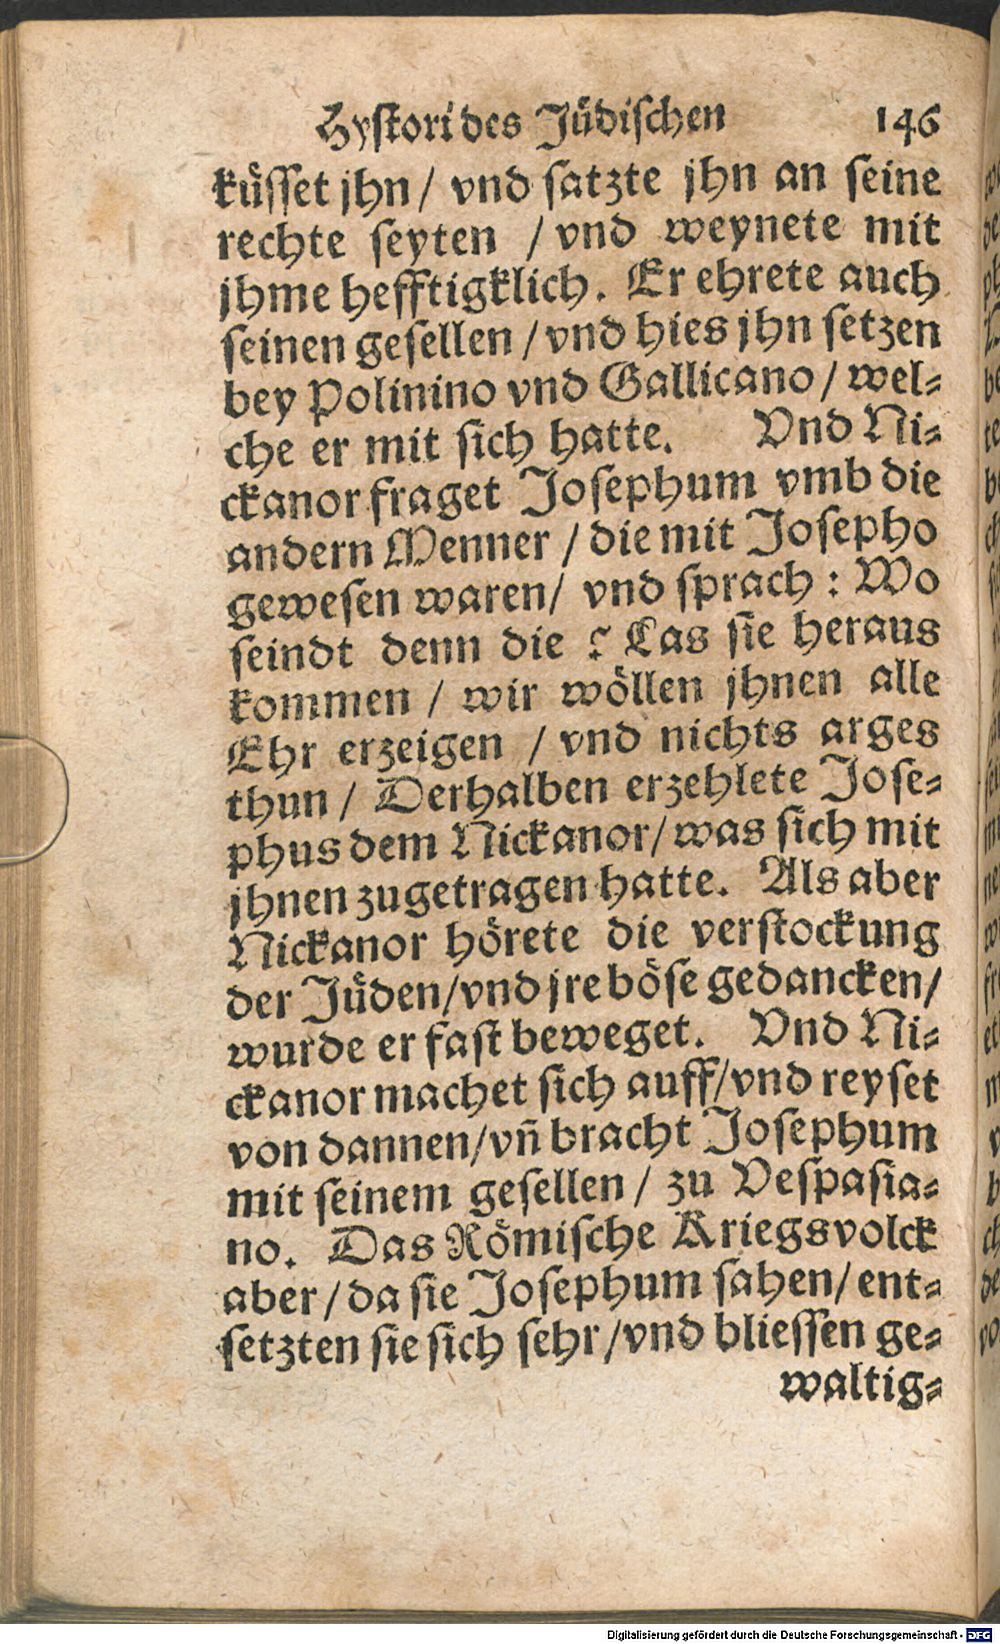 Hystori des Jüdischen 146
küsset jhn / vnd satzte jhn an seine
rechte seyten / vnd weynete mit
jhme hefftigklich. Er ehrete auch
seinen gesellen / vnd hies jhn setzen
bey Polinino vnd Gallicano / wel-
che er mit sich hatte. Vnd Ni-
ckanor fraget Josephum vmb die
andern Menner / die mit Josepho
gewesen waren / vnd sprach : Wo
seindt denn die ? Las sie heraus
kommen / wir wöllen jhnen alle
Ehr erzeigen / vnd nichts arges
thun / Derhalben erzehlete Jose-
phus dem Nickanor / was sich mit
jhnen zugetragen hatte. Als aber
Nickanor hörete die verstockung
der Jüden / vnd jre böse gedancken /
wurde er fast beweget. Vnd Ni-
ckanor machet sich auff / vnd reyset
von dannen / vñ bracht Josephum
mit seinem gesellen / zu Vespasia-
no. Das Römische Kriegsvolck
aber / da sie Josephum sahen / ent-
setzten sie sich sehr / vnd bliessen ge-
waltig-
Digitalisierung gefördert durch die Deutsche Forschungsgemeinschaft - DFG